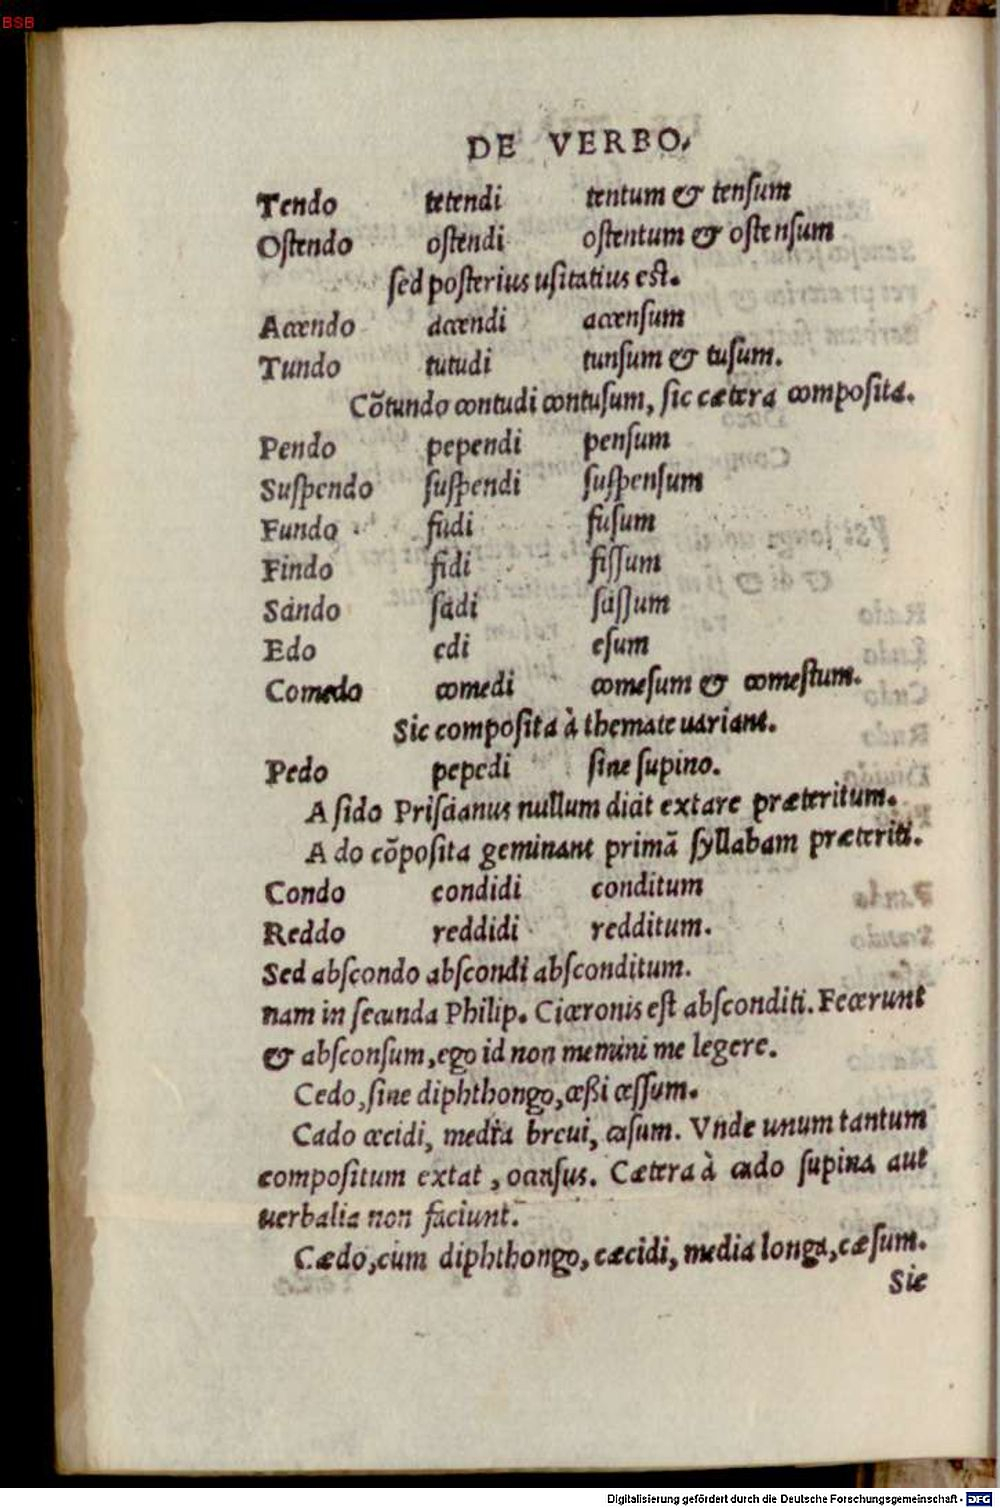 BSB
DE VERBO,
Tendo tetendi tentum & tensum
Ostendo ostendi ostentum & ostensum
sed posterius usitatius est.
Accendo accendi accensum
Tundo tutudi tunsum & tusum.
Cõtundo contudi contusum, sic cætera composita.
Pendo pependi pensum
Suspendo suspendi suspensum
Fundo fudi fusum
Findo fidi fissum
Scindo scidi scissum
Edo edi esum
Comedo comedi comesum & comestum.
Sic composita à themate uariant.
Pedo pepedi sine supino.
A sido Priscianus nullum dicit extare præteritum.
A do cõposita geminant primã syllabam præteriti.
Condo condidi conditum
Reddo reddidi redditum.
Sed abscondo abscondi absconditum.
nam in secunda Philip. Ciceronis est absconditi. Fecerunt
& absconsum, ego id non memini me legere.
Cedo, sine diphthongo, cessi cessum.
Cado cecidi, media breui, casum. Vnde unum tantum
compositum extat, occasus. Cætera à cado supina aut
uerbalia non faciunt.
Cædo, cum diphthongo, cæcidi, media longa, cæsum.
Sic
Digitalisierung gefördert durch die Deutsche Forschungsgemeinschaft - DFG